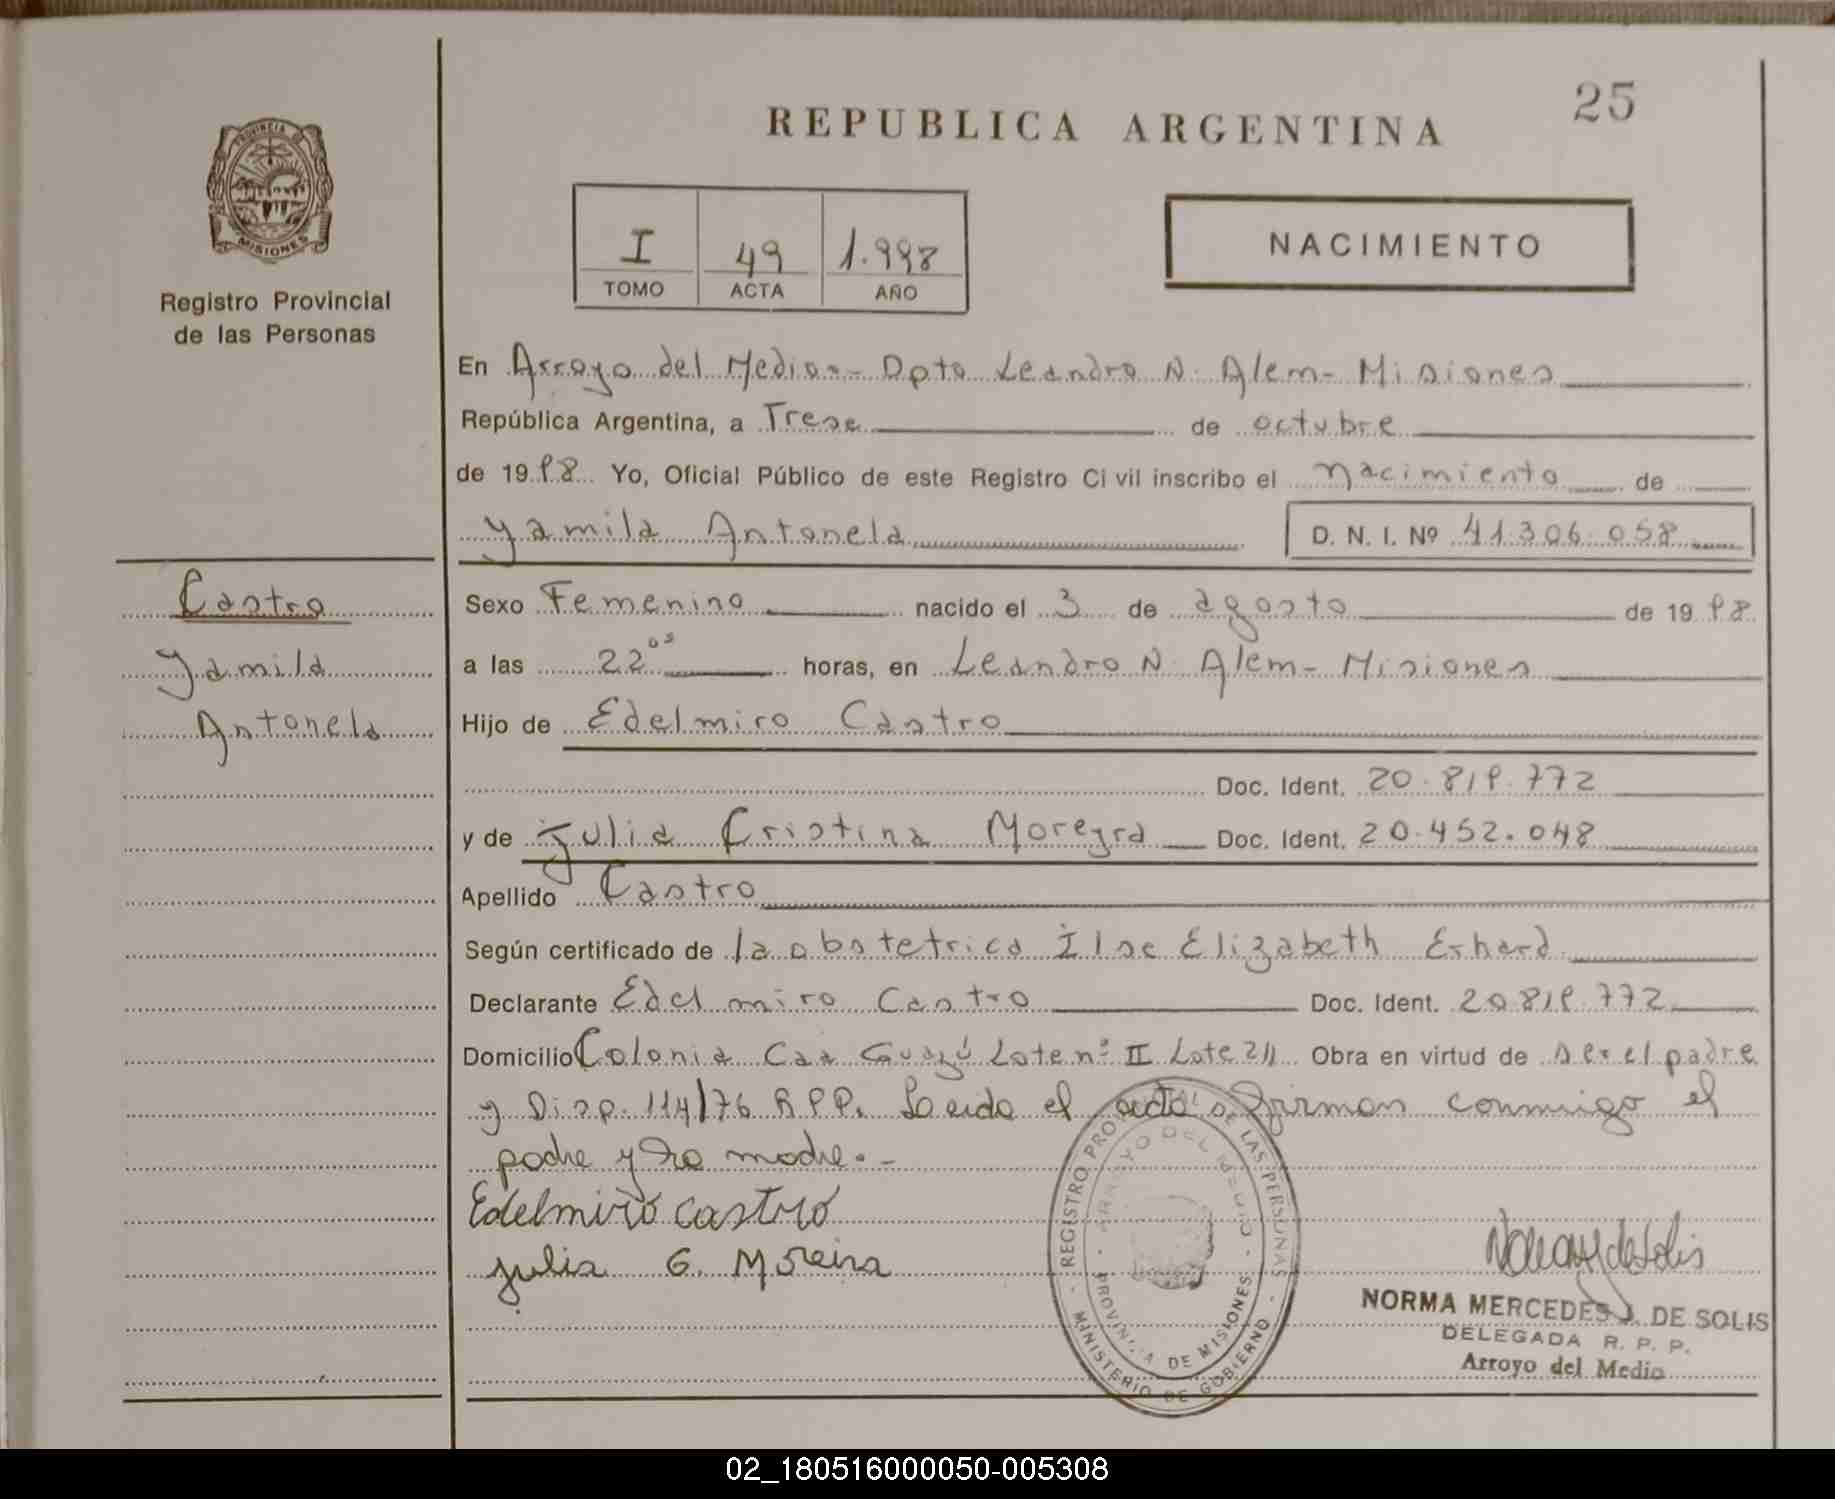 25
REPUBLICA ARGENTINA
PROVINCIA DE
MISIONES
Registro Provincial
de las Personas
I 49 1.998
TOMO ACTA AÑO
NACIMIENTO
En Arroyo del Medio.- Dpto Leandro N. Alem- Misiones
República Argentina, a Trese de octubre
de 1998 Yo, Oficial Público de este Registro Civil inscribo el nacimiento de
Yamila Antonela D. N. I. Nº 41.306.058
Castro
Yamila
Antonela
Sexo Femenino nacido el 3 de agosto de 1998
a las 22 05 horas, en Leandro N. Alem- Misiones
Hijo de Edelmiro Castro
Doc. Ident. 20.819.772
y de Julia Cristina Moreyra Doc. Ident. 20.452.048
Apellido Castro
Según certificado de la obstetrica Ilse Elizabeth Erhard
Declarante Edelmiro Castro Doc. Ident. 20.819.772
Domicilio Colonia Caa Guazú Lote nº II Lote 211 Obra en virtud de ser el padre
y Disp. 114/76 RPP. Leida el acta firman conmigo el
padre y la madre.-
Edelmiro Castro
Julia G. Moreira
REGISTRO PROVINCIAL DE LAS PERSONAS
MINISTERIO DE GOBIERNO
ARROYO DEL MEDIO
PROVINCIA DE MISIONES
NORMA MERCEDES J. DE SOLIS
DELEGADA R. P. P.
Arroyo del Medio
02_180516000050-005308